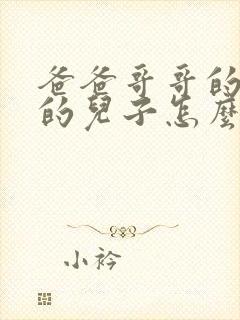 爸爸哥哥的
的兒子怎麼
小衿